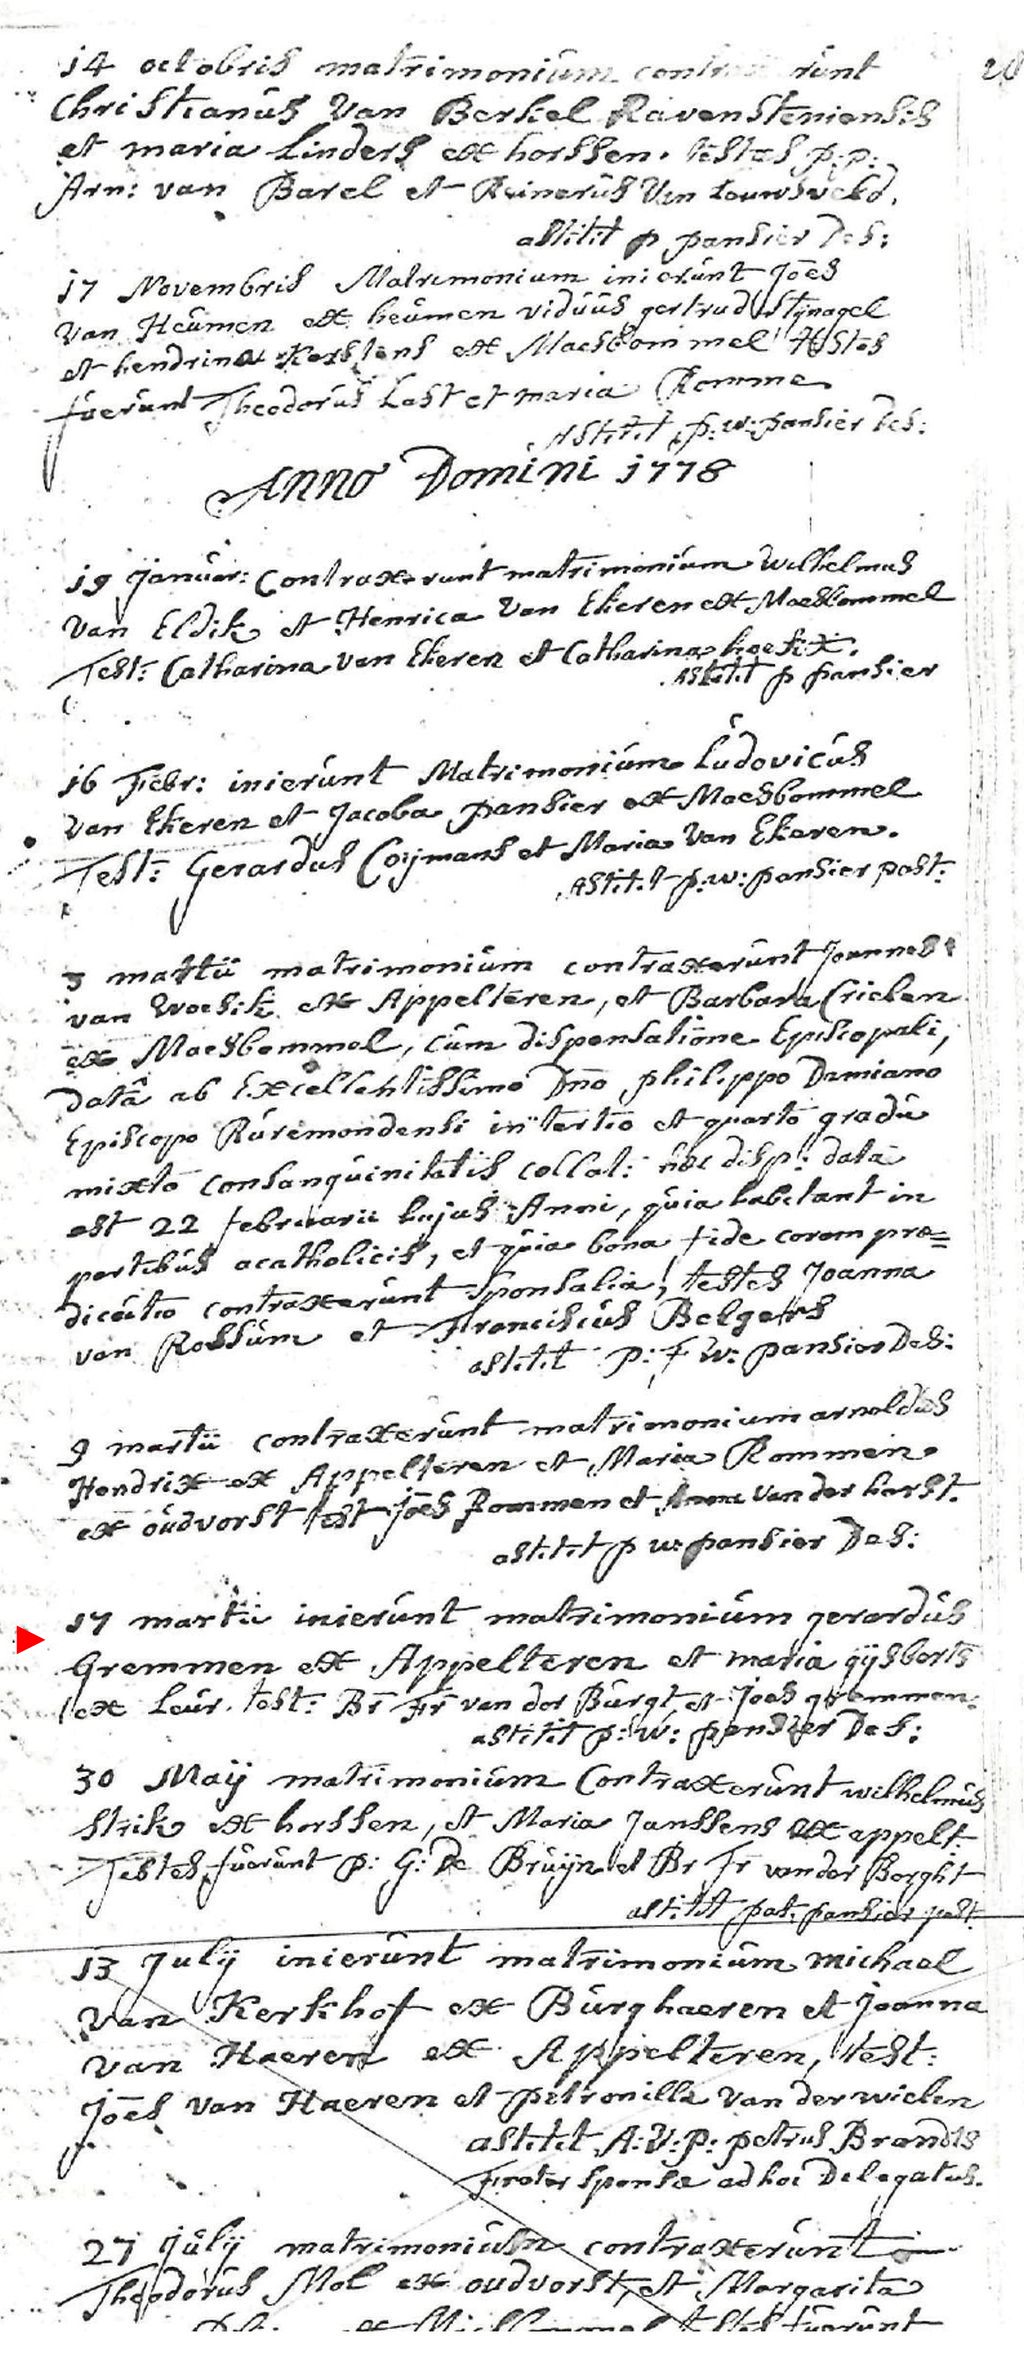 14 octobris matrimonium contraxerunt
Christianus Van Berkel Ravensteniensis
et maria Linders ex horssen. testes p: p:
Arn: van Barel et Reinerus Van Louwsveld.
astitit p pansier Des:
17 Novembris Matrimonium inierunt Joēs
van Heumen ex heumen viduus gertrud
et hendrina Kerstens ex Maesbommel testes
fuerunt Theodorus Last et maria Romme
Astitit p: w: pansier Des:
Anno Domini 1778
19 Januar: Contraxerunt matrimonium Wilhelmus
van Eldik et Henrica Van Ekeren ex Maesbommel
Test: Catharina van Ekeren et Catharina
Astitit p pansier
16 Febr: inierunt Matrimonium Ludovicus
van Ekeren et Jacoba pansier ex Maesbommel
Test: Gerardus Coijmans et Maria Van Ekeren.
Astitit p: w: pansier past:
3 martii matrimonium contraxerunt Joannes
van Woesik ex Appelteren, et Barbara Crielen
ex Maesbommel, cum dispensatione Episcopali,
datâ ab Excellentissimo Dno philippo Damiano
Episcopo Ruremondensi in tertio et quarto gradu
mixto consanguinitatis collat: hæc disp: data
est 22 februarii hujus Anni, quia habitant in
partibus acatholicis, et quia bona fide coram præ=
dicato contraxerunt sponsalia, testes Joanna
van Rossum et Franciscus Belgers
astitit p: f w: pansier Des:
9 martii contraxerunt matrimonium arnoldus
Hendrix ex Appelteren et Maria Rommen
ex oudvorst test Joēs Rommen et Anna Van der horst.
astitit p w: pansier Des:
17 martii inierunt matrimonium gerardus
Gremmen ex Appelteren et maria gijsberts
ex Leur. test: Br Fr van der Burgt et Joēs gremmen.
astitit p: w: pansier Des:
30 Maij matrimonium Contraxerunt wilhelmus
Strik ex horssen, et Maria Janssens ex appelt:
Testes fuerunt p: G: De Bruijn et Br Fr van der Borght
astitit pat: pansier past
13 Julij inierunt matrimonium michael
Van Kerkhof ex Burghaeren et Joanna
van Haeren ex Appelteren, test:
Joēs van Haeren et petronilla van der wielen
astitit A: V: P: petrus Brands
Frater sponsæ ad hoc Delegatus.
27 Julij matrimonium contraxerunt
Theodorus Mol ex oudvorst, et Margarita
testes fuerunt